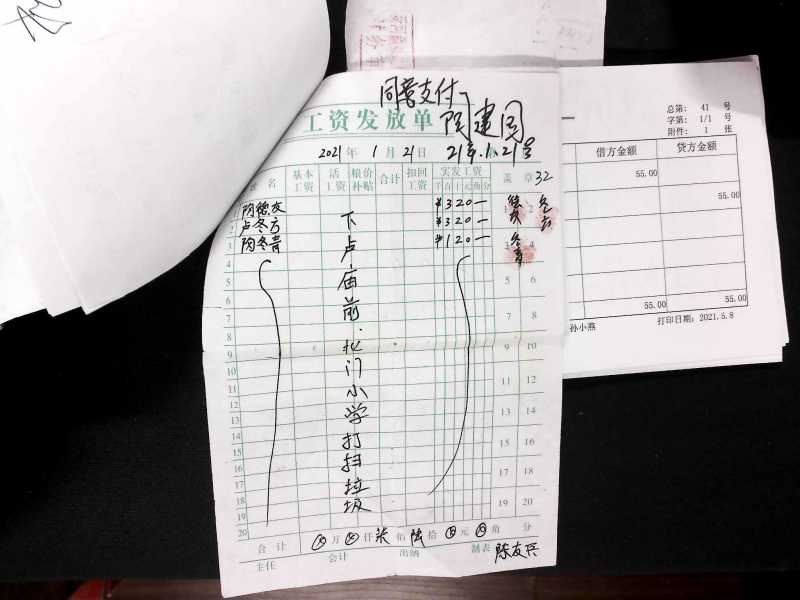 同意支付
陶建国
工资发放单
2021年1月21日
21年.1.21号
姓名 基本工资 活工资 粮价补贴 合计 扣回工资 实发工资 盖章 32
千 百 十 元 角 分
1 陶德友 ¥320一 1 2
2 卢冬方 ¥320一
3 陶冬青 ¥120一 3 4
下卢庙前.北门小学打扫垃圾
4
5 5 6
6
7 7 8
8
9 9 10
10
11 11 12
12
13 13 14
14
15 15 16
16
17 17 18
18
19 19 20
20
合计 万 仟 柒佰 陆拾 元 角 分
主任 会计 出纳 制表 陈友兵
总第: 41 号
字第: 1/1 号
附件: 1 张
借方金额 贷方金额
55.00
55.00
55.00 55.00
孙小燕 打印日期: 2021.5.8